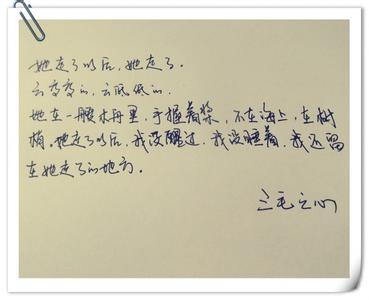 她走了以后,她走了.
云变变的,云低低的.
她在一艘木舟里,手握着桨,不在海上,在树
梢。她走了以后,我没醒过,我没睡着,我还留
在她走了的地方。
三毛之心